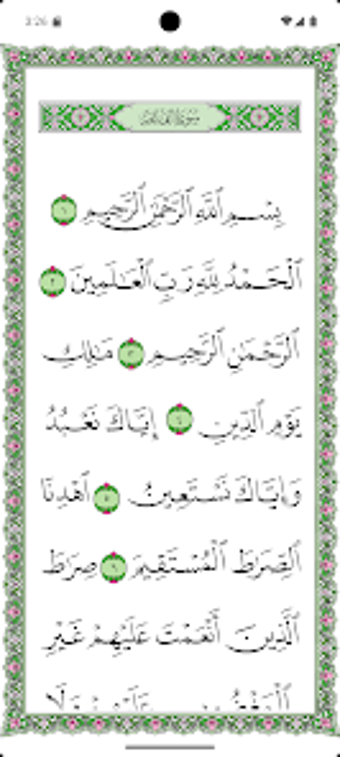 3:26
سورة الفاتحة
بِسْمِ ٱللَّهِ ٱلرَّحْمَٰنِ ٱلرَّحِيمِ ١
ٱلْحَمْدُ لِلَّهِ رَبِّ ٱلْعَٰلَمِينَ ٢
ٱلرَّحْمَٰنِ ٱلرَّحِيمِ ٣ مَٰلِكِ
يَوْمِ ٱلدِّينِ ٤ إِيَّاكَ نَعْبُدُ
وَإِيَّاكَ نَسْتَعِينُ ٥ ٱهْدِنَا
ٱلصِّرَٰطَ ٱلْمُسْتَقِيمَ ٦ صِرَٰطَ
ٱلَّذِينَ أَنْعَمْتَ عَلَيْهِمْ غَيْرِ